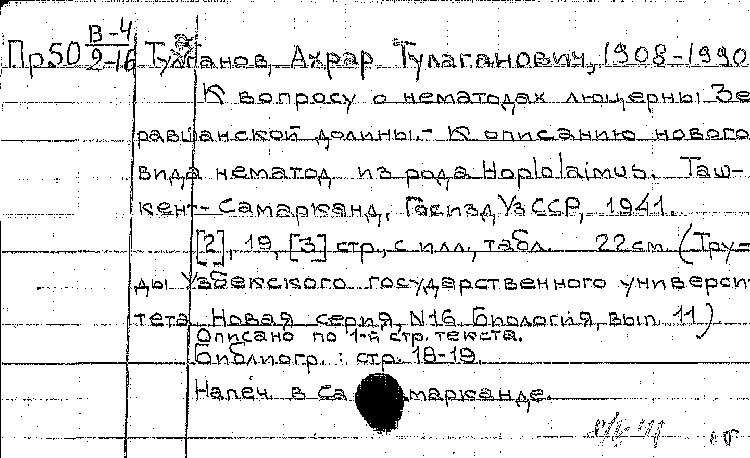 Пр50 В-4/2-16 Тулганов, Ахрар Тулаганович, 1908-1990
К вопросу о нематодах люцерны Зе
равшанской долины.- К описанию нового
вида нематод из рода Hoplolaimus. Таш-
кент-Самарканд, Госизд УзССР, 1941.
[2], 19, [3] стр., с илл., табл. 22см. (Тру=
ды Узбекского государственного универси
тета Новая серия, N16. Биология, вып. 11)
Описано по 1-й стр. текста.
Библиогр.: стр. 18-19.
Напеч. в Са марканде.